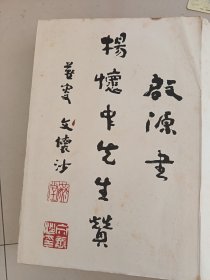 啟源書
楊懷中先生贊
燕叟 文懷沙